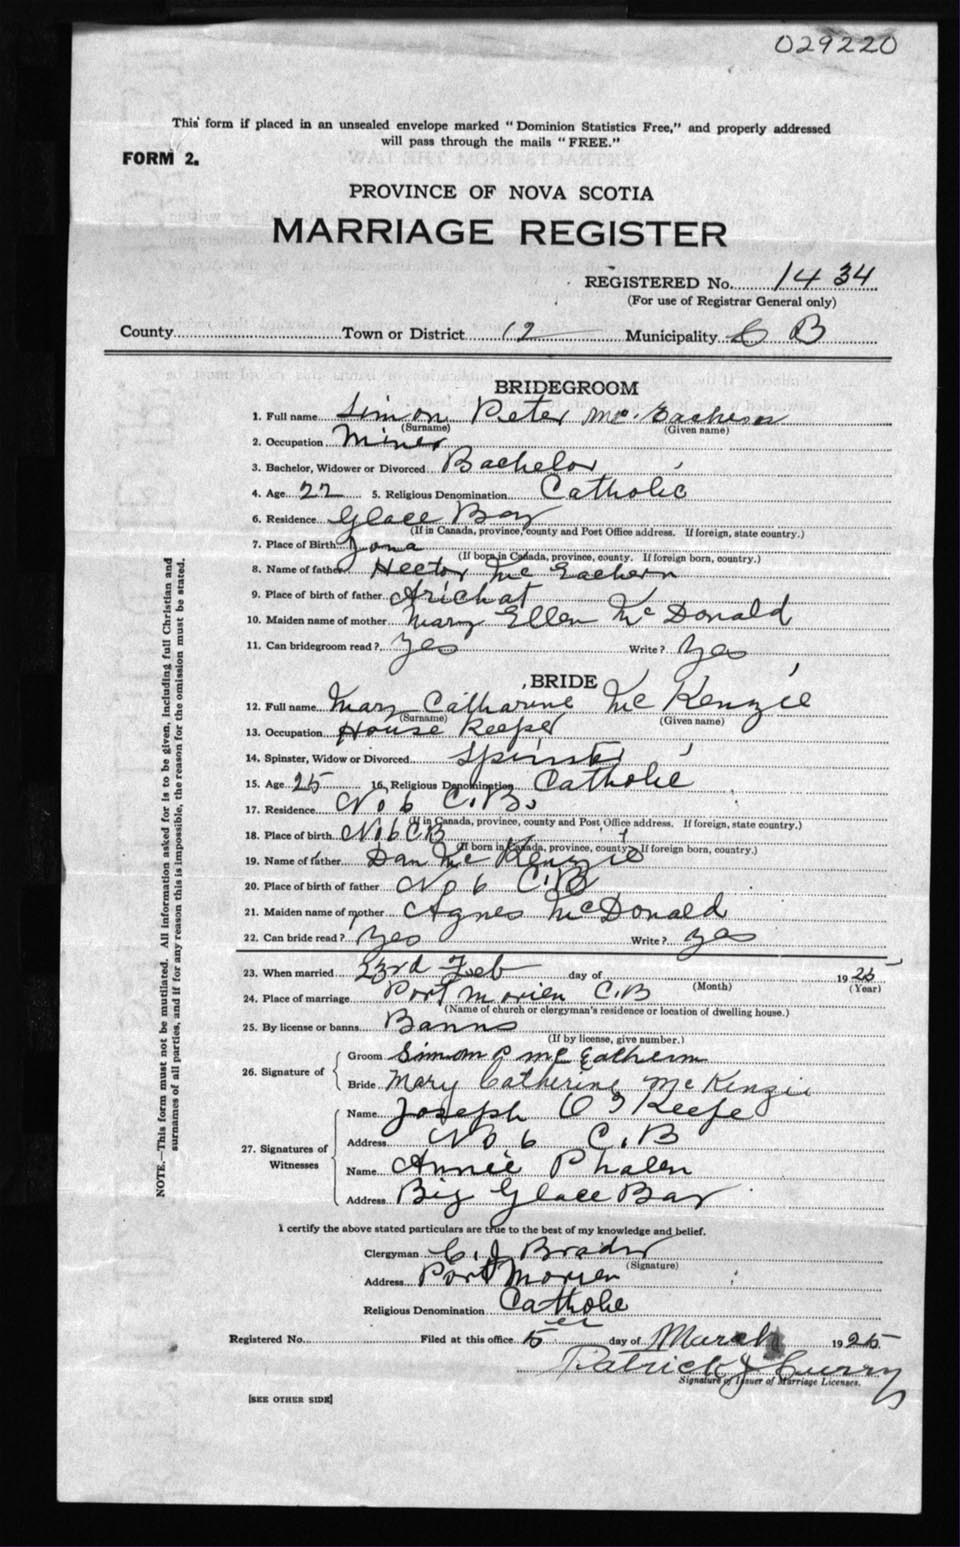 029220
This form if placed in an unsealed envelope marked "Dominion Statistics Free," and properly addressed
will pass through the mails "FREE."
FORM 2.
PROVINCE OF NOVA SCOTIA
MARRIAGE REGISTER
REGISTERED No. 1434
(For use of Registrar General only)
County Town or District 12 Municipality C B
BRIDEGROOM
1. Full name Simon Peter Mc Eachern
(Surname) (Given name)
2. Occupation Miner
3. Bachelor, Widower or Divorced Bachelor
4. Age 22 5. Religious Denomination Catholic
6. Residence Glace Bay
(If in Canada, province, county and Post Office address. If foreign, state country.)
7. Place of Birth Iona
(If born in Canada, province, county. If foreign born, country.)
8. Name of father Hector Mc Eachern
9. Place of birth of father Arichat
10. Maiden name of mother Mary Ellen McDonald
11. Can bridegroom read? Yes Write? Yes
BRIDE
12. Full name Mary Catharine Mc Kenzie
(Surname) (Given name)
13. Occupation House Keeper
14. Spinster, Widow or Divorced Spinster
15. Age 25 16. Religious Denomination Catholic
17. Residence No 6 C.B.
(If in Canada, province, county and Post Office address. If foreign, state country.)
18. Place of birth No 6 CB
(If born in Canada, province, county. If foreign born, country.)
19. Name of father Dan Mc Kenzie
20. Place of birth of father No 6 C.B
21. Maiden name of mother Agnes McDonald
22. Can bride read? Yes Write? Yes
23. When married 23rd Feb day of 1925
(Month) (Year)
24. Place of marriage Port Morien C.B
(Name of church or clergyman's residence or location of dwelling house.)
25. By license or banns Banns
(If by license, give number.)
26. Signature of
Groom Simon P Mc Eachern
Bride Mary Catherine McKenzie
27. Signatures of Witnesses
Name Joseph O'Keefe
Address No 6 C.B
Name Annie Phalen
Address Big Glace Bay
I certify the above stated particulars are true to the best of my knowledge and belief.
Clergyman C. J. Brady
(Signature)
Address Port Morien
Religious Denomination Catholic
Registered No. Filed at this office 5 day of March 1925
Patrick J Curry
Signature of Issuer of Marriage Licenses.
[SEE OTHER SIDE]
NOTE.—This form must not be mutilated. All information asked for is to be given, including full Christian and
surnames of all parties, and if for any reason this is impossible, the reason for the omission must be stated.